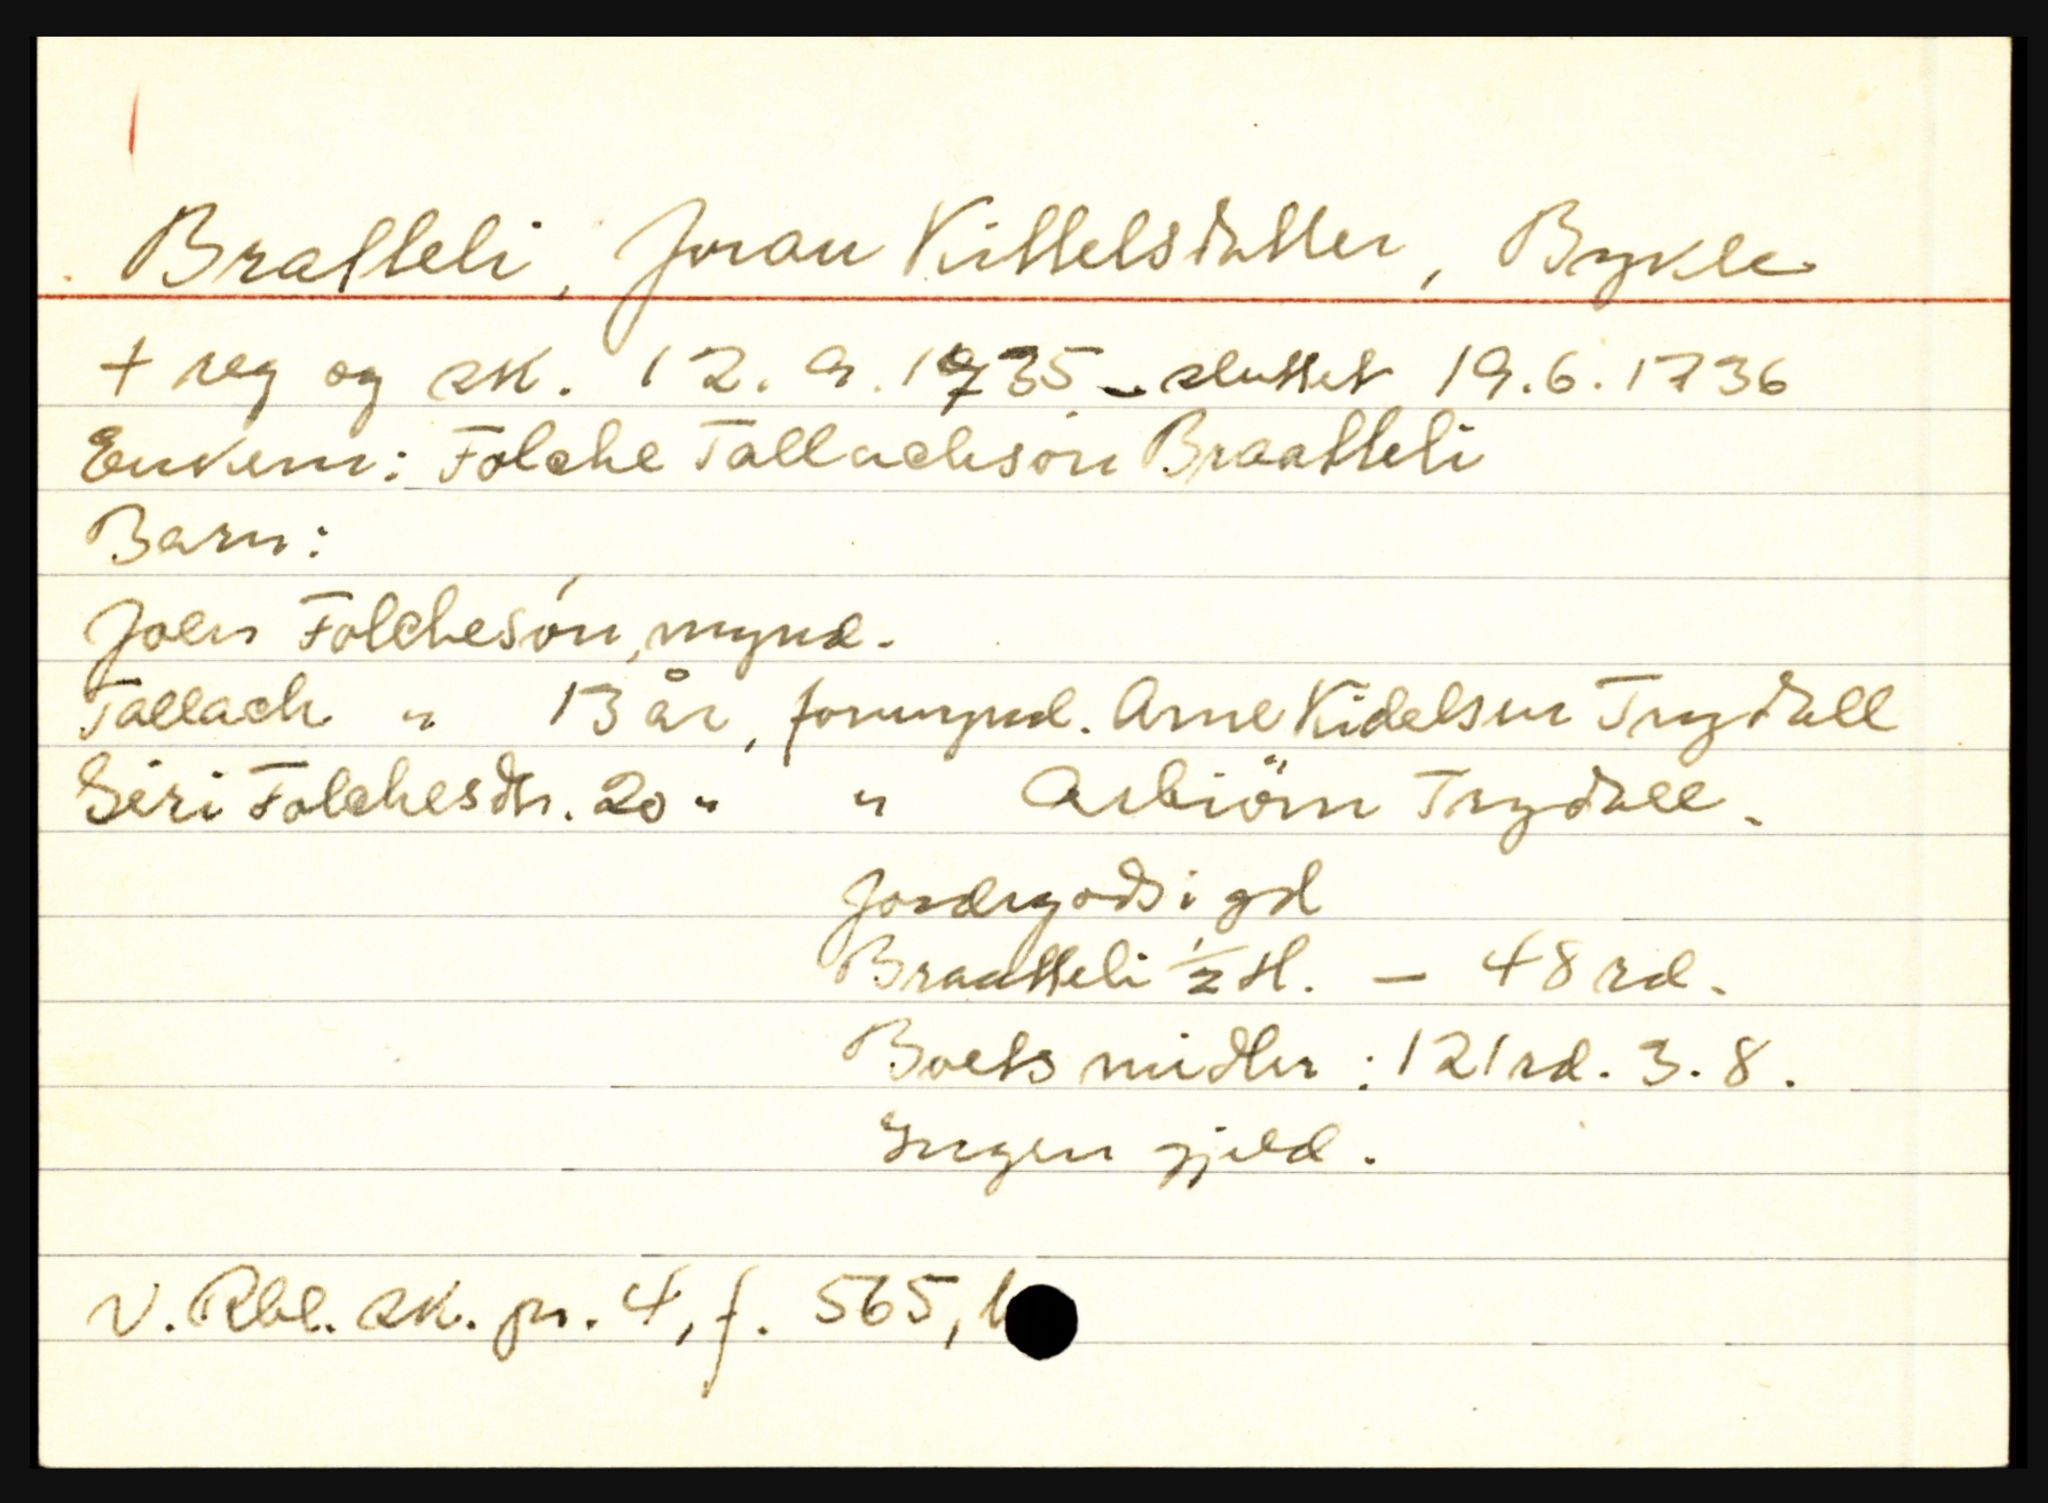 Bratteli, Joran Kittelsdatter, Bykle
+ reg og sk. 12.9.1735 - sluttet 19.6.1736
Enkem: Folche Tallachsón Braatteli
Barn:
Joen Folchesón, mynd.
Tallach " 13 år, formynd. Arne Kidelsen Trydall
Siri Folchesdtr. 20 " " Asbiörn Trydall.
Jordegods i gd
Braatteli ½ tl. - 48 rd.
Boets midler: 121 rd. 3. 8.
Ingen gjeld.
V. Rbl. sk. pr. 4, f. 565, b